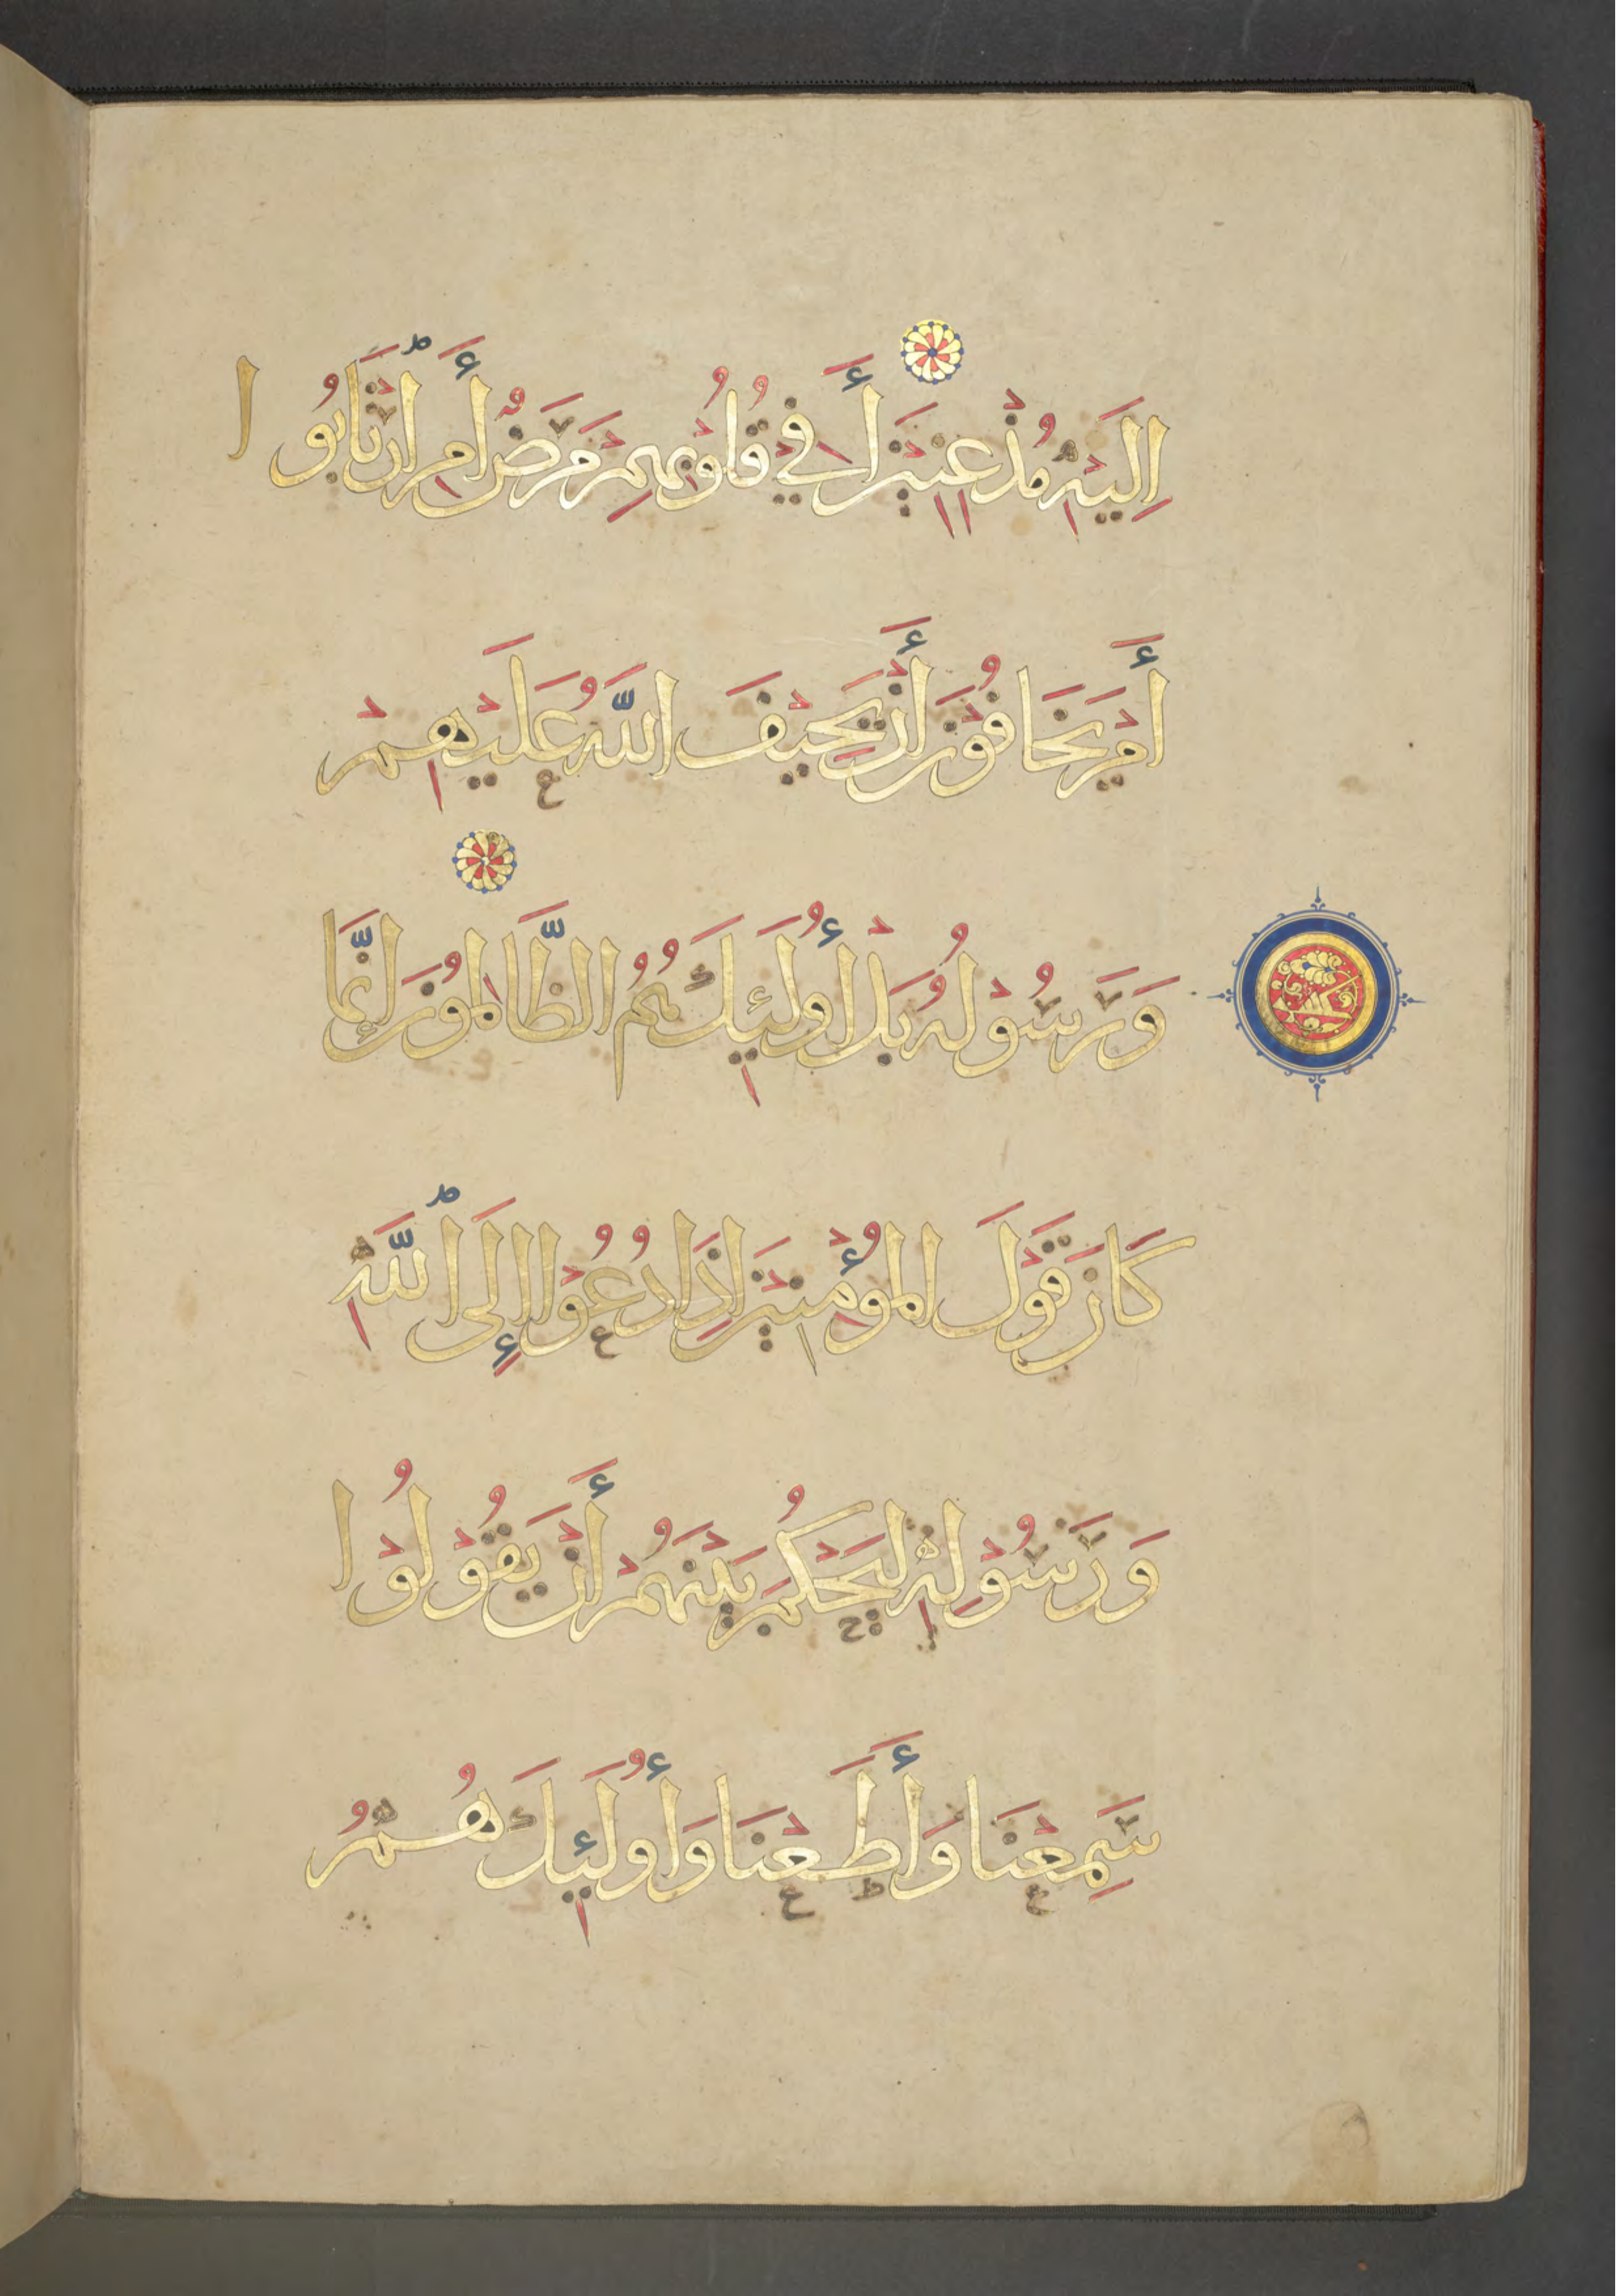 إِلَيْهِ مُذْعِنِينَ أَفِي قُلُوبِهِمْ مَرَضٌ أَمِ ارْتَابُوا
أَمْ يَخَافُونَ أَنْ يَحِيفَ اللَّهُ عَلَيْهِمْ
وَرَسُولُهُ بَلْ أُولَئِكَ هُمُ الظَّالِمُونَ إِنَّمَا
كَانَ قَوْلَ الْمُؤْمِنِينَ إِذَا دُعُوا إِلَى اللَّهِ
وَرَسُولِهِ لِيَحْكُمَ بَيْنَهُمْ أَنْ يَقُولُوا
سَمِعْنَا وَأَطَعْنَا وَأُولَئِكَ هُمُ